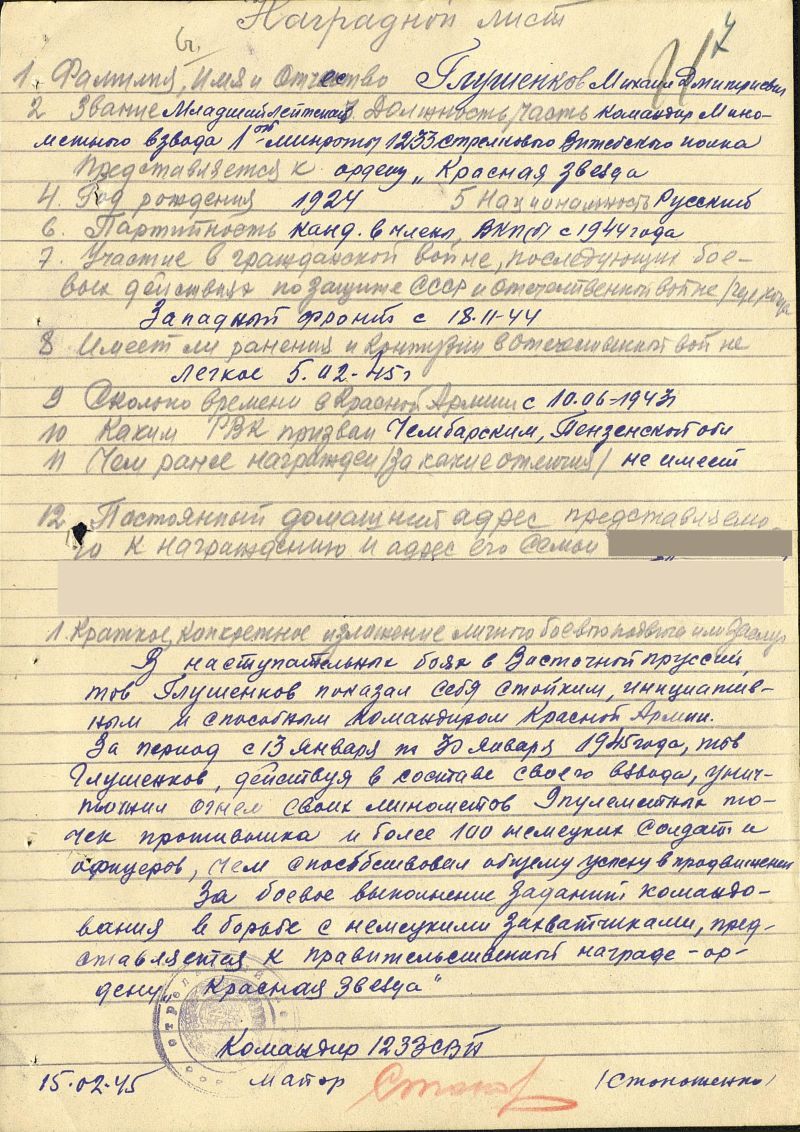 Наградной лист
1. Фамилия, имя и Отчество Глушенков Михаил Дмитриевич
2 Звание Младший лейтенант 3. Должность, часть командир Мино-
метного взвода 1ой минроты 1233 стрелкового Витебского полка
Представляется к ордену „Красная Звезда
4. Год рождения 1924 5 Национальность Русский
6. Партийность канд. в члены ВКП(б) с 1944 года
7. Участие в гражданской войне, последующих бое-
вых действиях по защите СССР и отечественной войне /где, когда
Западный фронт с 18.11-44
8 Имеет ли ранения и контузии в отечественной войне
легкое 5.02-45г
9 Сколько времени в Красной Армии с 10.06-1943
10 Каким РВК призван Чембарским, Пензенской обл
11 Чем ранее награжден /за какие отличия/ не имеет
12 Постоянный домашний адрес представляемо-
го к награждению и адрес его семьи
1. Краткое, конкретное изложение личного боевого подвига или заслуг
В наступательных боях в Восточной пруссии,
тов Глушенков показал себя стойким, инициатив-
ным и способным командиром Красной Армии.
За период с 13 января по 30 января 1945 года, тов
Глушенков, действуя в составе своего взвода, унич-
тожил огнем своих минометов 9 пулеметных то-
чек противника и более 100 немецких солдат и
офицеров, чем способствовал общему успеху в продвижении
За боевое выполнение заданий командо-
вания в борьбе с немецкими захватчиками, пред-
ставляется к правительственной награде - ор-
дену „Красная Звезда"
Командир 1233 СВП
15.02.45 майор (Стокошенко)